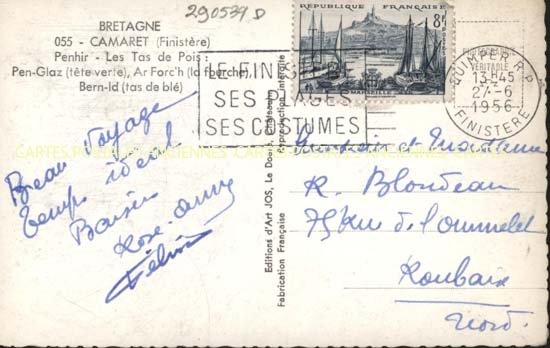 290539 D
BRETAGNE
055 - CAMARET (Finistère)
Penhir - Les Tas de Pois :
Pen-Glaz (tête verte), Ar Forc'h (la fourche),
Bern-Id (tas de blé)
RÉPUBLIQUE FRANÇAISE
8F
MARSEILLE
LE FINISTÈRE
SES PLAGES
SES COSTUMES
QUIMPER R.P.
13H45
27-6
1956
FINISTERE
CARTES POSTALES ANCIENNES
Beau voyage
temps idéal
Baisers
Rose-Anny
Editions d'Art JOS, Le Doaré, Châteaulin
Reproduction interdite
Fabrication Française
Monsieur et
R. Blondeau
75 rue de l'ommelet
Roubaix
Nord.